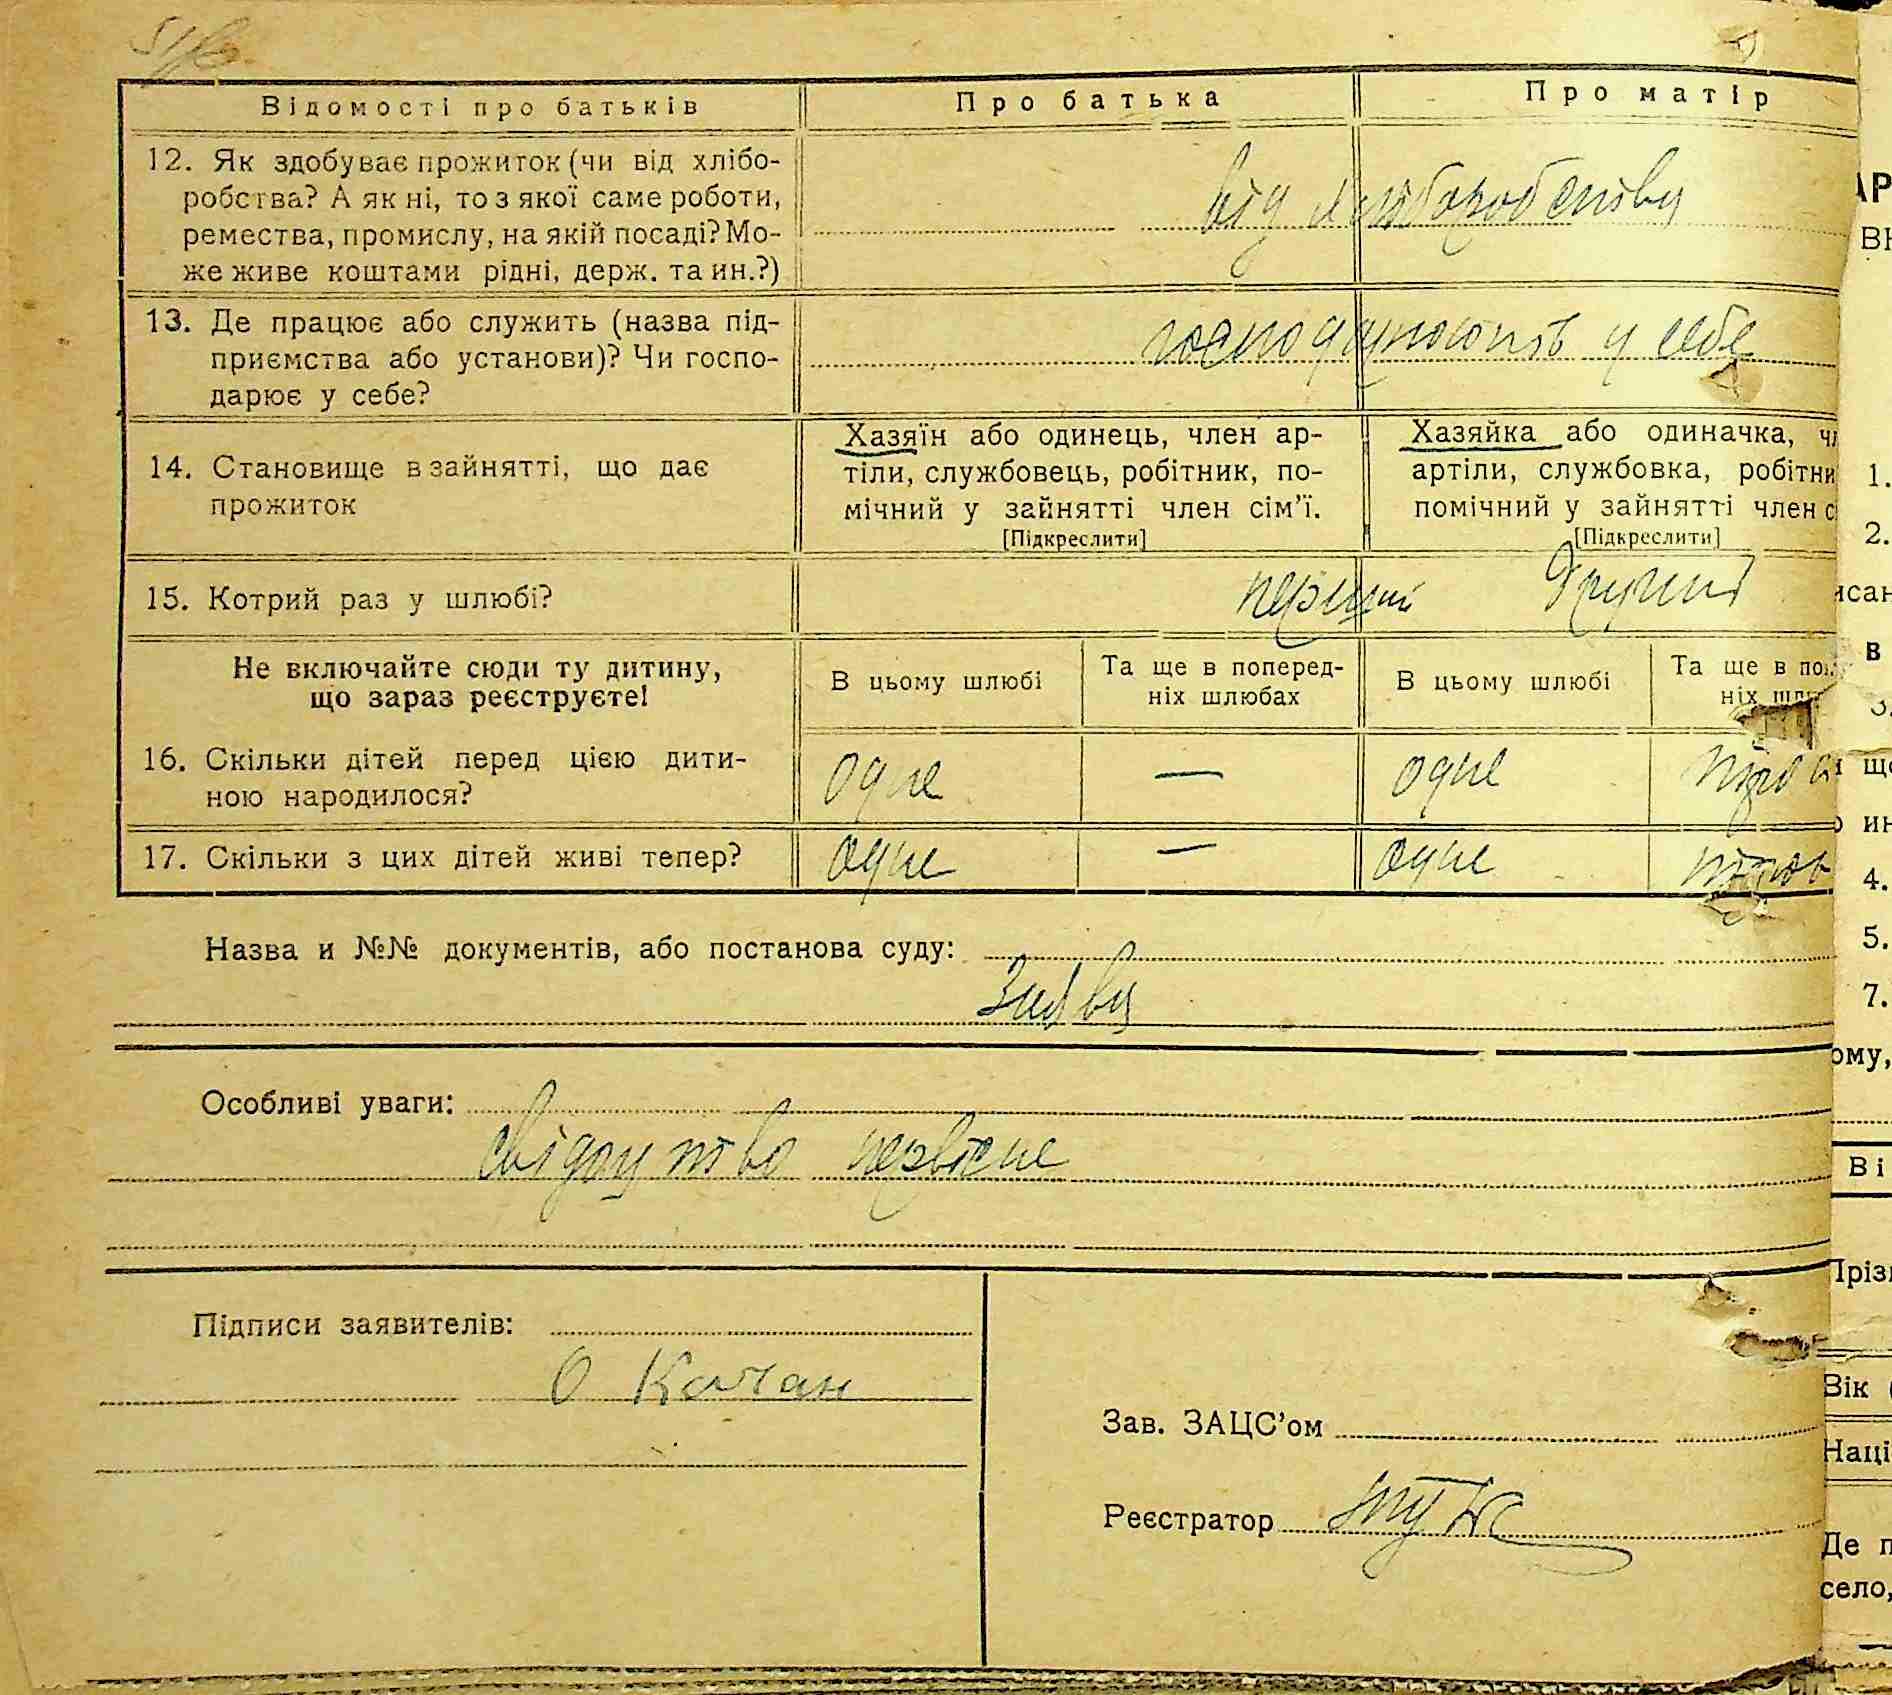 Відомості про батьків
Про батька
Про матір
12. Як здобуває прожиток (чи від хлібо-
робства? А як ні, то з якої саме роботи,
ремества, промислу, на якій посаді? Мо-
же живе коштами рідні, держ. та ин.?)
від хліборобства
13. Де працює або служить (назва під-
приємства або установи)? Чи госпо-
дарює у себе?
господарюють у себе
14. Становище в зайнятті, що дає
прожиток
Хазяїн або одинець, член ар-
тіли, службовець, робітник, по-
мічний у зайнятті член сім'ї.
[Підкреслити]
Хазяйка або одиначка, чл
артіли, службовка, робітни
помічний у зайнятті член с
[Підкреслити]
15. Котрий раз у шлюбі?
перший
другий
Не включайте сюди ту дитину,
що зараз реєструєте!
В цьому шлюбі
Та ще в поперед-
ніх шлюбах
В цьому шлюбі
Та ще в поп
ніх шлю
16. Скільки дітей перед цією дити-
ною народилося?
одне
—
одне
17. Скільки з цих дітей живі тепер?
одне
—
одне
Назва и №№ документів, або постанова суду:
Заява
Особливі уваги:
свідоцтво первісне
Підписи заявителів:
О Качан
Зав. ЗАЦС'ом
Реєстратор
АР
ВН
1.
2.
исан
в
3.
що
ин
4.
5.
7.
ому,
Ві
Прізв
Вік (
Наці
Де п
село,